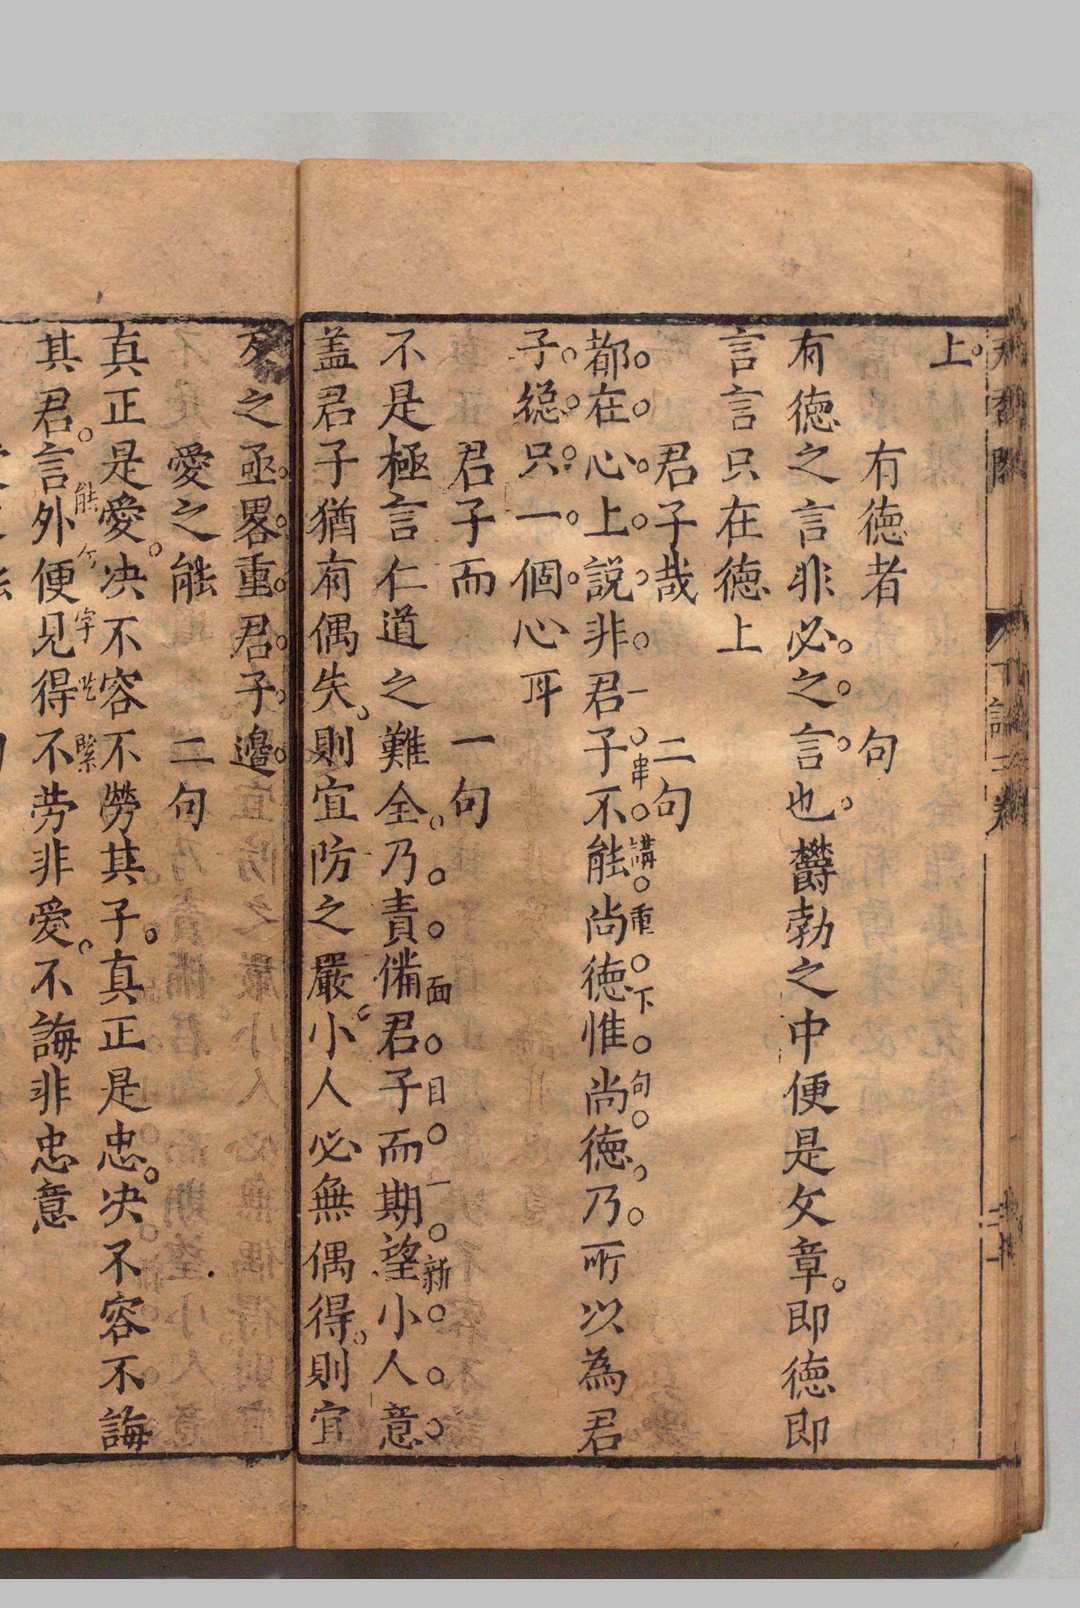 上
有德者　句
有德之言非必之言也欝勃之中便是文章即德即
言言只在德上
君子哉　二句
都在心上說非君子不能尚德惟尚德乃所以為君
一串講重下句
子縂只一個心耳
君子而　一句
不是極言仁道之難全乃責備君子而期望小人意
面目一新
盖君子猶有偶失則宜防之嚴小人必無偶得則宜
之亟畧重君子邊
愛之能　二句
真正是愛决不容不勞其子真正是忠决不容不誨
其君言外便見得不劳非愛不誨非忠意
能
字
緊